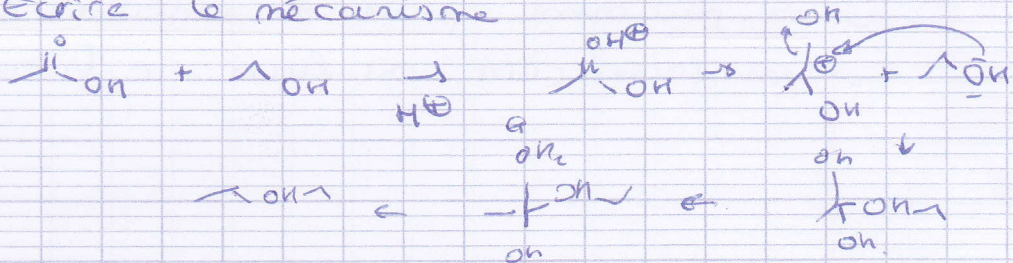 Ecrire le mécanisme
O OH ⊕ OH
OH + OH → OH → ⊕ + OH
H⊕ OH
⊕
OH₂ OH ↓
OH ← OH ← OH
OH OH